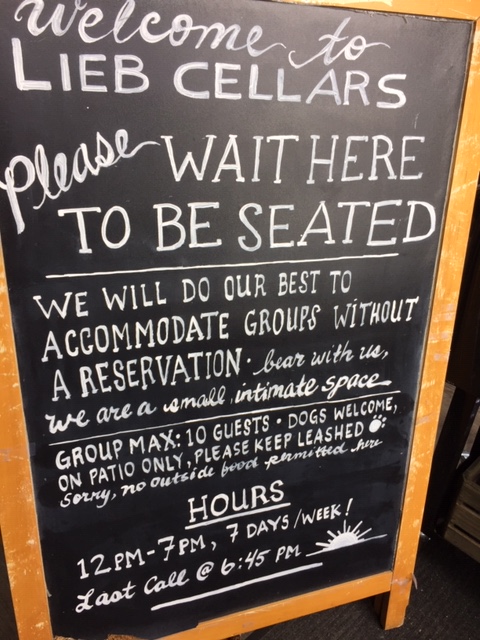 Welcome to
LIEB CELLARS
Please WAIT HERE
TO BE SEATED
WE WILL DO OUR BEST TO
ACCOMMODATE GROUPS WITHOUT
A RESERVATION · bear with us,
we are a small, intimate space
GROUP MAX: 10 GUESTS · DOGS WELCOME,
ON PATIO ONLY, PLEASE KEEP LEASHED
Sorry, no outside food permitted here
HOURS
12PM-7PM, 7 DAYS/WEEK!
Last Call @ 6:45 PM